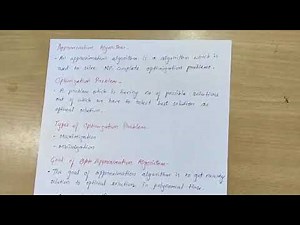 Approximation Algorithm.
- An approximation algorithm is an algorithm which is
used to solve NP complete optimization problems.
Optimization Problem.
- A problem which is having no. of possible solutions
out of which we have to select best solution as
optimal solution.
Types of Optimization Problem
- Minimization
- Maximization
Goal of Approximation Algorithm-
- The goal of approximation algorithm is to get nearby
solution to optimal solution in polynomial time